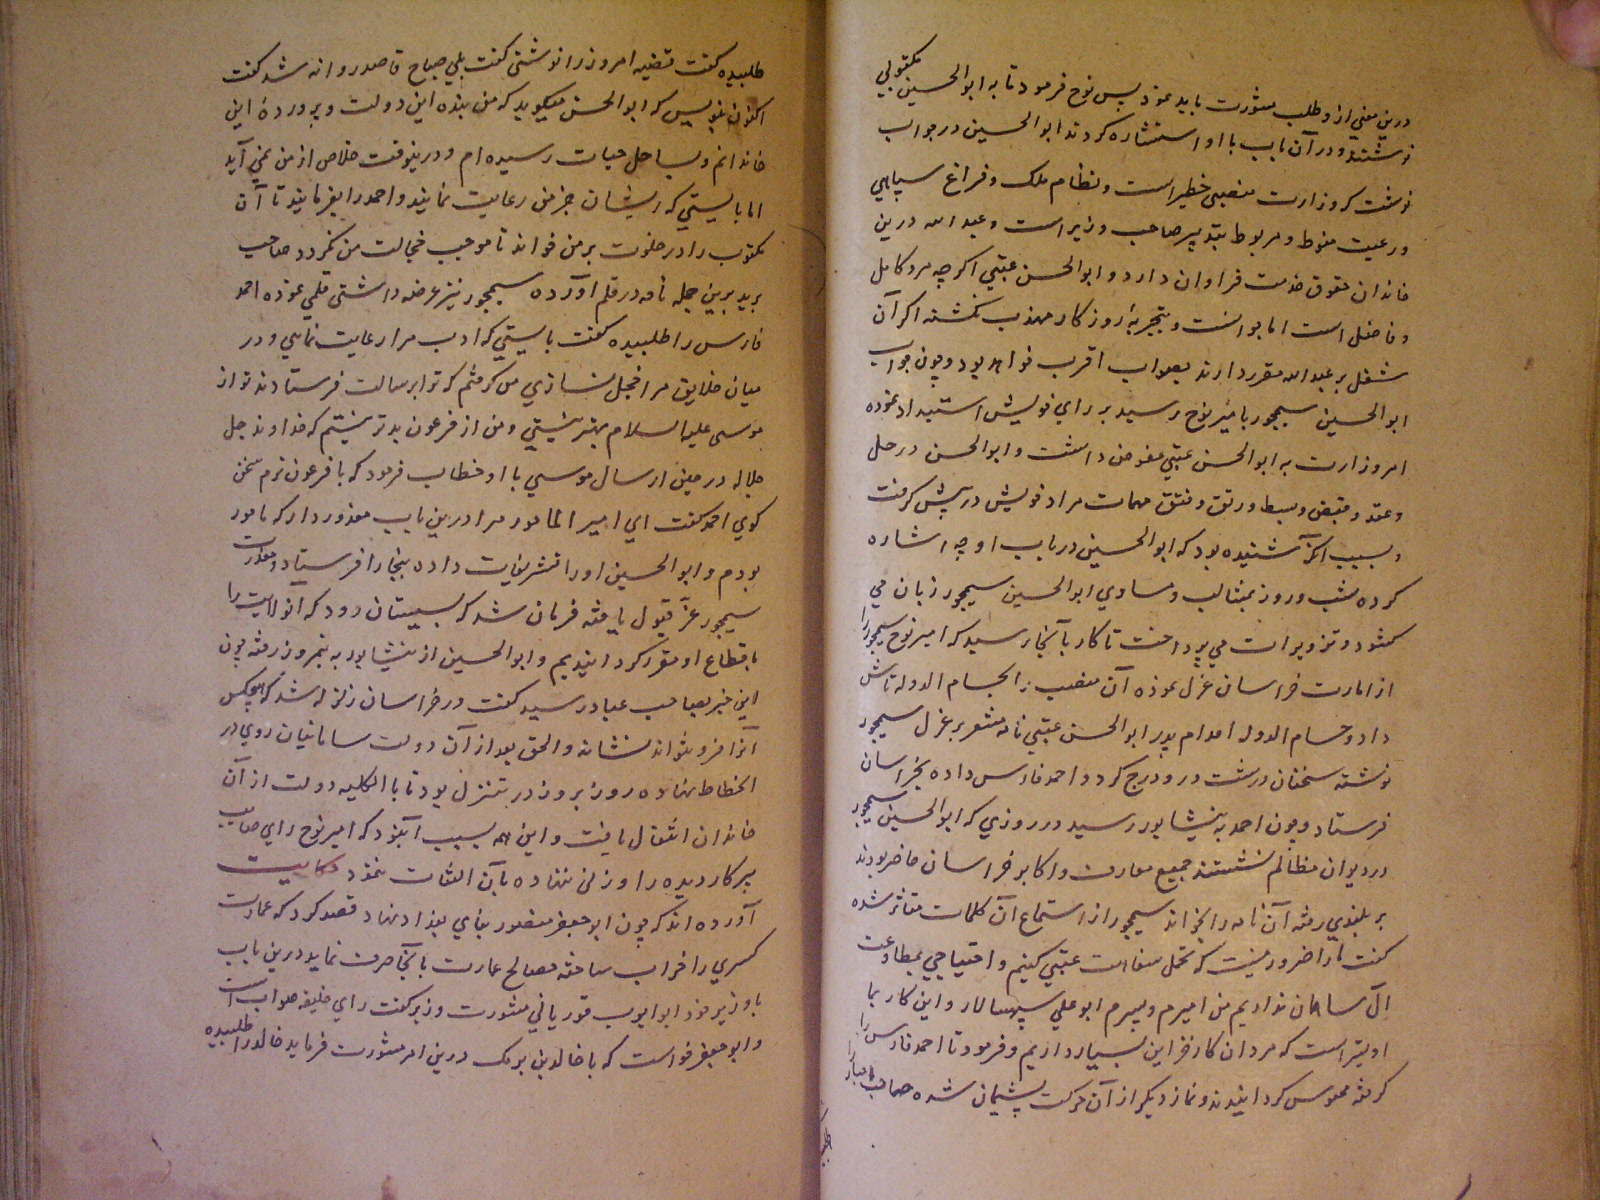 درین معنی از و طلب مشورت باید نمود پس نوح فرمود تا به ابوالحسین مکتوبی
نوشتند و در آن باب با او استشاره کردند ابوالحسین در جواب
نوشت که وزارت منصبی خطیر است و نظام ملک و فراغ سپاهی
و رعیت منوط و مربوط بتدبیر صاحب وزیر است و عبدالله درین
خاندان حقوق خدمت فراوان دارد و ابوالحسن عتبی اگرچه مرد کامل
و فاضل است اما جوانست و بتجربهٔ روزکار مهذب نکشته اگر آن
شغل بر عبدالله مقرر دارند بصواب اقرب خواهد بود و چون جواب
ابوالحسین سیمجور بامیر نوح رسید بر رای خویش استبداد نموده
امر وزارت به ابوالحسن عتبی مفوض داشت و ابوالحسن در حل
و عقد و قبض و بسط و رتق و فتق مهمات مراد خویش در پیش کرفت
و بسبب آنکه شنیده بود که ابوالحسین در باب او چه اشاره
کرده شب و روز بمثالب و مساوی ابوالحسین سیمجور زبان می
کشود و تزویرات می پرداخت تا کار بآنجا رسید که امیر نوح سیمجور را
از امارت خراسان عزل نموده آن منصب را بحسام الدوله تاش
داد و حسام الدوله ابوالحسن عتبی نامه مشعر بر عزل سیمجور
نوشته سخنان درشت درو درج کرد و احمد فارس داده بخراسان
فرستاد و چون احمد به نیشابور رسید در روزی که ابوالحسین سیمجور
در دیوان مظالم نشستند جمیع معارف و اکابر خراسان حاضر بودند
بر بلندی رفته آن نامه را بخواند سیمجور از استماع آن کلمات متاثر شده
کفت ما را ضرور نیست که تحمل سفاهت عتبی کنیم و احتیاجی بمطاوعت
آل سامان نداریم من امیرم و پسرم ابوعلی سپهسالار و این کار بما
اولیتر است که مردان کار فزاین بسیار داریم و فرمود تا احمد فارس را
کرفته محبوس کردانیدند و نماز دیکر از آن حرکت پشیمان شده صاحب اخبار را
طلبیده کفت قضیه امروز را نوشتی کفت بلی صباح قاصد روانه شد کفت
اکنون بنویس که ابوالحسن میکوید که من بنده این دولت و پروردهٔ این
خاندانم و بساحل حیات رسیده ام و درینوقت خلاص از من نمی آید
اما بایستی که ریشان جز من رعایت نمایند و احمد را بفرمایند تا آن
مکتوب را در خلوت بر من خواند تا موجب خجالت من نکردد صاحب
برید برین جمله نامه در قلم آورده سیمجور نیز عرضه داشتی قلمی نموده احمد
فارس را طلبیده کفت بایستی که ادب مرا رعایت نمایی و در
میان خلایق مرا خجل نسازی من کرفتم که ترا برسالت فرستادند تو از
موسی علیه السلام بهتر نیستی و من از فرعون بدتر نیستم که خداوند جل
جلاله در حین ارسال موسی با او خطاب فرمود که با فرعون نرم سخن
کوی احمد کفت ای امیر المامور مرا درین باب معذور دار که مامور
بودم و ابوالحسین او را تشریفات داده ببخارا فرستاد و معذرت
سیمجور عز قبول یافته فرمان شد که بسیستان رود که آنولایت را
باقطاع او مقرر کردانیدیم و ابوالحسین از نیشابور به نیمروز رفته چون
این خبر بصاحب عباد رسید کفت در خراسان زلزله شد که هیچکس
آنرا فرو نتواند نشاند و الحق بعد از آن دولت سامانیان روی در
انحطاط نهاده روز بروز در تنزل بود تا بالکلیه دولت از آن
خاندان انتقال یافت و این همه بسبب آنبود که امیر نوح رای صایب
پیر کار دیده را وزنی ننهاده بآن التفات ننمود حکایت
آورده اند که چون ابوجعفر منصور بنای بغداد نهاد قصد کرد که عمارت
کسری را خراب ساخته مصالح عمارت بآنجا صرف نماید درین باب
با وزیر خود ابوایوب موریانی مشورت وزیر کفت رای خلیفه صواب است
و ابوجعفر خواست که با خالد بن برمک درین امر مشورت فرماید خالد را طلبیده